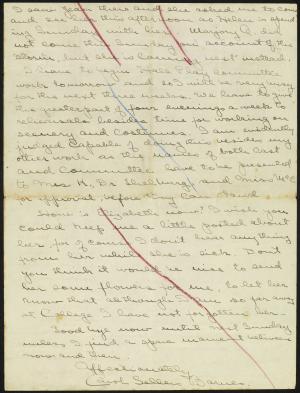 I saw Jean there and she asked me to come
and see her this afternoon as Helen is spend
ing Sunday with her. Marjory C. did
not come this Sunday on account of the
storm, but she is coming next instead.
I have to begin Field Day committee
works tomorrow and so I will be very busy
for the next few weeks. We have to give
the greater part of four evenings a week to
rehearsals besides time for working on
scenery and costumes. I am evidently
judged capable of doing this besides my
other works as the names of both cast
and Committee had to be presented
to Mrs K, Dr and Miss
for approval, before they can stand.
How is Elizabeth now? I wish you
could keep me a little posted about
her for of course I don't hear anything
from her while she is sick. Don't
you think it would be nice to send
her some flowers for me, to let her
know that although I am so far away
at College I have not forgotten her.
Good bye now until next Sunday
unless I find a spare moment between
now and then.
Affectionately
Carol